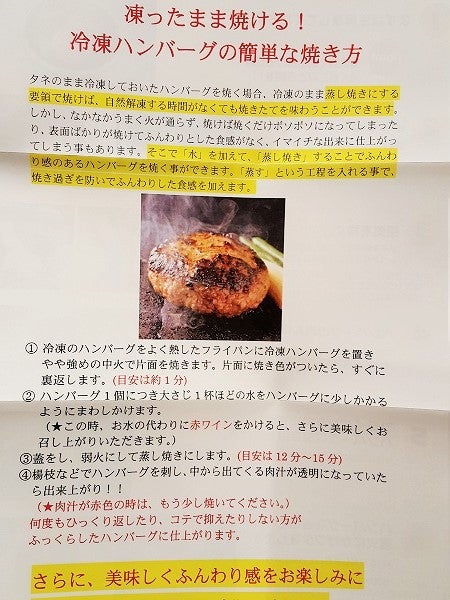 凍ったまま焼ける！
冷凍ハンバーグの簡単な焼き方
タネのまま冷凍しておいたハンバーグを焼く場合、冷凍のまま蒸し焼きにする
要領で焼けば、自然解凍する時間がなくても焼きたてを味わうことができます。
しかし、なかなかうまく火が通らず、焼けば焼くだけボソボソになってしまった
り、表面ばかりが焼けてふんわりとした食感がなく、イマイチな出来に仕上がっ
てしまう事もあります。そこで「水」を加えて、「蒸し焼き」することでふんわ
り感のあるハンバーグを焼く事ができます。「蒸す」という工程を入れる事で、
焼き過ぎを防いでふんわりした食感を加えます。
① 冷凍のハンバーグをよく熱したフライパンに冷凍ハンバーグを置き
やや強めの中火で片面を焼きます。片面に焼き色がついたら、すぐに
裏返します。(目安は約１分)
② ハンバーグ１個につき大さじ１杯ほどの水をハンバーグに少しかかる
ようにまわしかけます。
（★この時、お水の代わりに赤ワインをかけると、さらに美味しくお
召し上がりいただきます。）
③蓋をし、弱火にして蒸し焼きにします。(目安は 12 分～15 分)
④楊枝などでハンバーグを刺し、中から出てくる肉汁が透明になっていた
ら出来上がり！！
（★肉汁が赤色の時は、もう少し焼いてください。）
何度もひっくり返したり、コテで抑えたりしない方が
ふっくらしたハンバーグに仕上がります。
さらに、美味しくふんわり感をお楽しみに